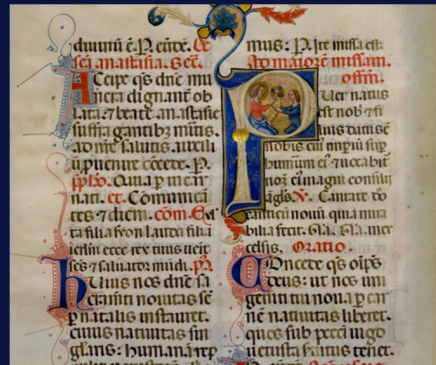 diuinū ē. P. eūdē. De
sc̄a anastasia. Sec̄.
Accipe q̄s dn̄e mu
nera dignant̄ ob
lata: ⁊ beate anastasie
suffragantib; m̄itis.
ad nr̄e salutis auxili
ū puenire cōcede. P.
Quia p incar
nati. et. Cōmunicā
tes ⁊ diem. cōm. Exl
ta filia syon lauda filia
ierlm ecce rex tuus ueit
sc̄s ⁊ saluator mūdi. p̄r
Huius nos dn̄e sa
cramēti nouitas sē
p natalis instauret.
cuius natiuitas sin
glaris: humanā rep
mus: P. Ite missa est.
Ad maiorē missam.
offm̄.
Puer natus
est nob ⁊ fi
lius datus ē
nobis cui imperiū sup
humerū ei ⁊ uocabit̄
nom̄ ei magni consilii
āgls. V. Cantate dn̄o
canticū nouū quia mira
bilia fecit. Gl̄a. Gl̄a. in ex
celsis. Oratio.
Concede q̄s om̄ps
deus: ut nos uni
geniti tui noua p car
nē natiuitas liberet.
quos sub peccī iugo
uetusta seruitus tenet.